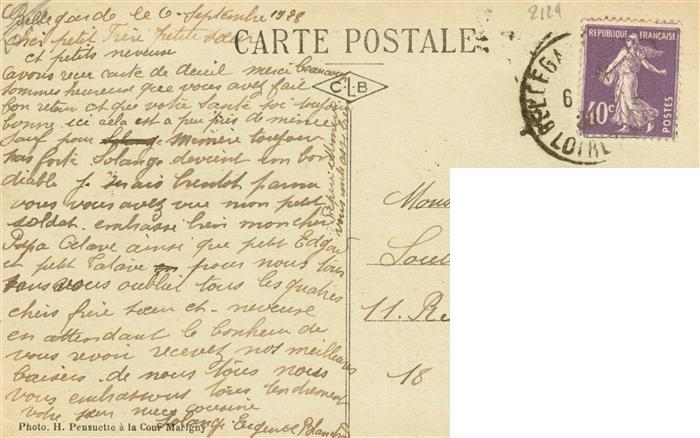 2129
Bellegarde le 6 Septembre 1928
cher petit Frère petite sœur
et petits neveuse
CARTE POSTALE
C.L.B
RÉPUBLIQUE FRANÇAISE
40c
POSTES
BELLEGA
6
LOIRE
avons reçu carte de deuil merci beaucoup
sommes heureuse que vous avez fait
bon retour et que votre santé soi toujour
bonne ici cela est a peu près de même
sauf pour Mémère toujour
pas forte Solange devient un bon
diable je mais bientot
vous vous avez vue mon petit
soldat embrasse bien mon cher
Papa Octave ainsi que petit Edgar
et petit pour nous tous
vous oublier tous les quatres
chers frère sœur et neveuse
en attendant le bonheur de
vous revoir recevez nos meilleurs
baisers de nous tous nous
vous embrassons tous tendrement
votre sœur niece cousine
Solange Eugence
Mons
11. R
18
Photo. H. Pensuette à la Cour Marigny